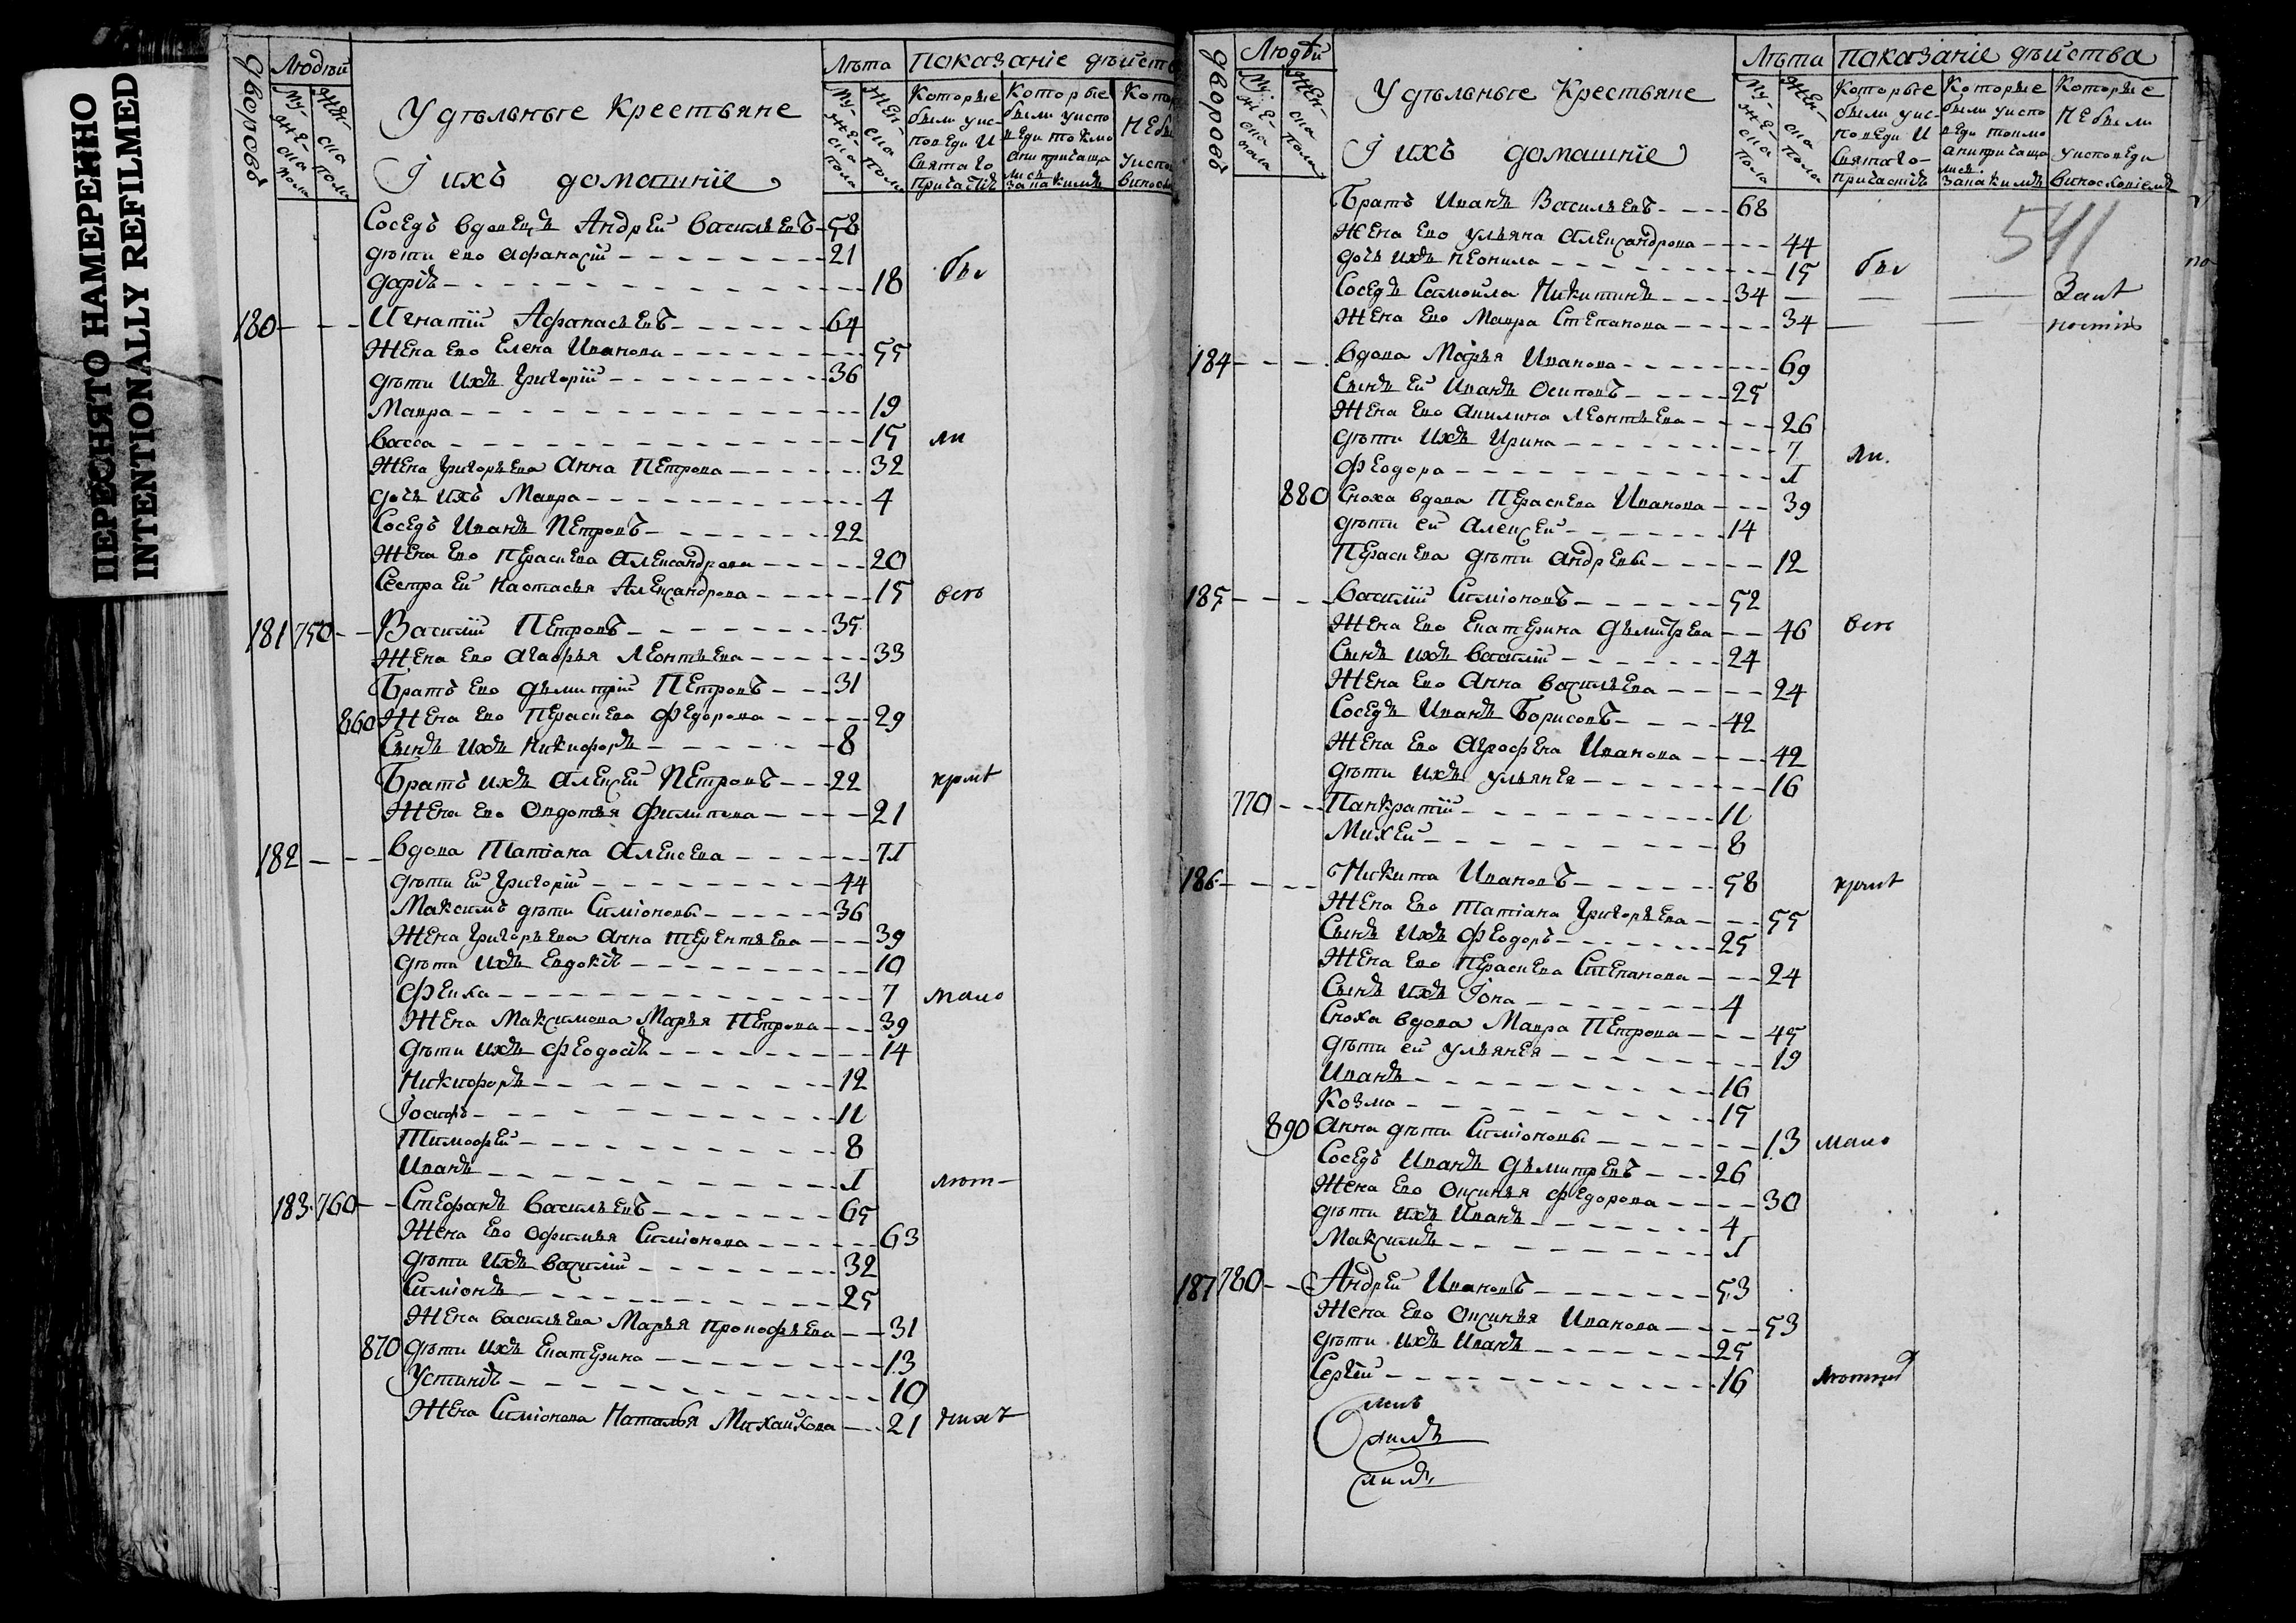 ПЕРЕСНЯТО НАМЕРЕННО
INTENTIONALLY REFILMED
дворовъ
Людѣй
Му-жЕ-ска пола
ЖЕн-ска пола
Удѣльные Крестьяне
І ихъ домашніе
Лѣта
Му-жЕ-ска пола
ЖЕн-ска пола
Показаніе дѣйств
Которые были уис-поведи И Святаго причастіѣ
Которые были уиспо веди токмо анипричаща лись
Сосѣдъ вдовецъ Андрей Васильевъ 58
дѣти ево Афанасій 21
Софіѣ 18 бы
180 Игнатій Афанасьевъ 64
Жена ево Елена Иванова 55
дѣти ихъ Григорій 36
Мавра 19
Васса 15 ли
Жена Григорьева Анна Петрова 32
дочь ихъ Мавра 4
Соседъ Иванъ Петровъ 22
Жена ево Параскева Александрова 20
Сестра ей Настасья Александрова 15 всѣ
181 750 Василій Петровъ 35
Жена ево Агафья Леонтьева 33
Братъ ево Дьмитрій Петровъ 31
860 Жена ево Параскева Федорова 29
Сынъ ихъ Никифоръ 8
Братъ ихъ Алексей Петровъ 22 кромѣ
Жена ево Овдотья Филипова 21
182 вдова Татіана Алексева 71
дѣти ей Григорій 44
Максимъ дѣти Симіоновы 36
Жена Григорьева Анна Терентьева 39
дѣти ихъ Евдокіѣ 10
Фекла 7 мало
Жена Максимова Марья Петрова 39
дѣти ихъ Феодосіѣ 14
Никифоръ 12
Іосифъ 11
Тимофей 8
Иванъ 1 лѣт-
183 760 Стефанъ Васильевъ 65
Жена ево Офимья Симіонова 63
дѣти ихъ Василій 32
Симіонъ 25
Жена Васильева Марья Прокофьева 31
870 дѣти ихъ Екатерина 13
Устинъ 10
Жена Симіонова Наталья Михайлова 21 нихъ
дворовъ
Людѣй
Му-жЕ-ска пола
ЖЕн-ска пола
Удѣльные Крестьяне
І ихъ домашніе
Лѣта
Му-жЕ-ска пола
ЖЕн-ска пола
показаніе дѣйства
Которые были уис-поведи И Святаго-причастіѣ
Которые были уиспо веди токмо анипричаща лись
Которые НЕбыли уисповеди
541
Братъ Иванъ Васильевъ 68
Жена ево Ульяна Александрова 44
дочь ихъ Неонила 15 бы
Соседъ Самойла Никитинъ 34
Жена ево Мавра Степанова 34
184 вдова Марья Иванова 69
Сынъ ей Иванъ Осиповъ 25
Жена ево Акилина Леонтьева 26
дѣти ихъ Ирина 7 ли.
Феодора 1
880 Сноха вдова Параскева Иванова 39
дѣти ей Алексей 14
Параскева дѣти Андревы 12
185 Василій Симіоновъ 52
Жена ево Екатерина Дьмитрева 46 всѣ
Сынъ ихъ Василій 24
Жена ево Анна Васильева 24
Соседъ Иванъ Борисовъ 42
Жена ево Агрофена Иванова 42
дѣти ихъ Ульянея 16
770 Панкратій 11
Михей 8
186 Никита Ивановъ 58 кромѣ
Жена ево Татіана Григорьева 55
Сынъ ихъ Феодоръ 25
Жена ево Параскева Степанова 24
Сынъ ихъ Іона 4
Сноха вдова Мавра Петрова 45
дѣти ей Ульянея 19
Иванъ 16
Козма 15
890 Анна дѣти Симіоновы 13 мало
Соседъ Иванъ Дьмитревъ 26
Жена ево Оксинья Федорова 30
дѣти ихъ Иванъ 4
Максимъ 1
187 780 Андрей Ивановъ 53
Жена ево Оксинья Иванова 53
дѣти ихъ Иванъ 25
Сергій 16